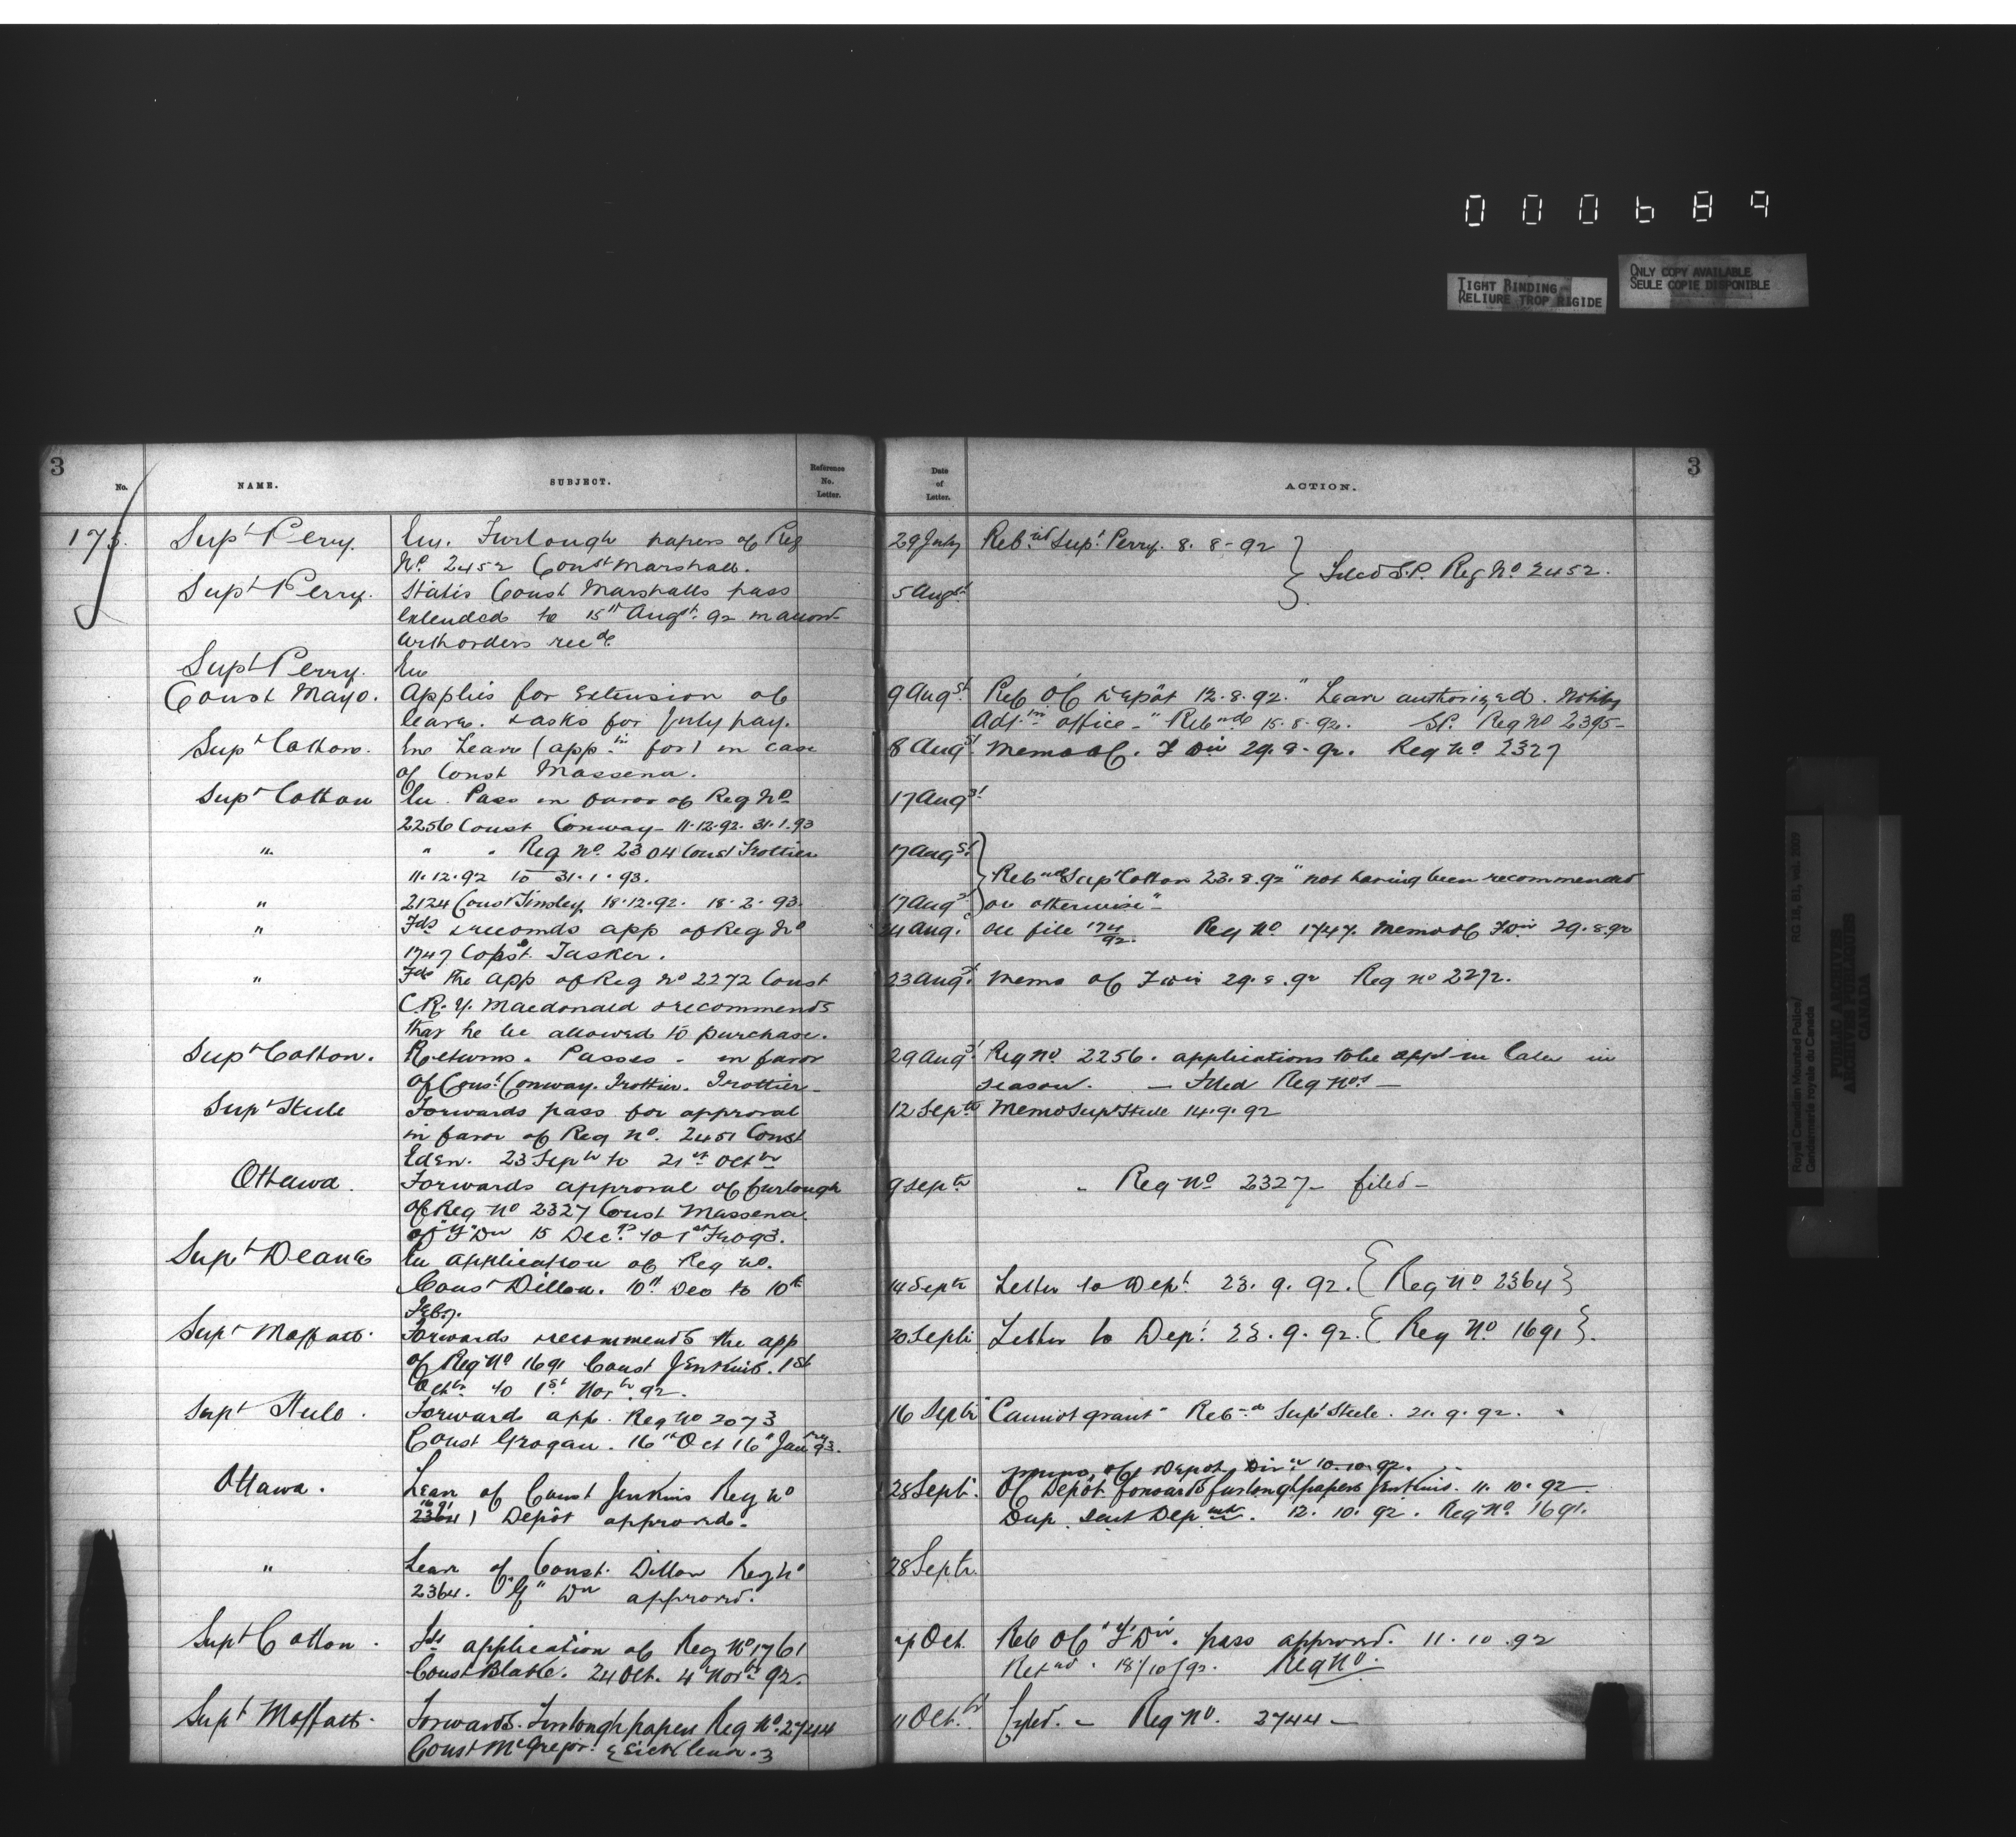 000689
TIGHT BINDING
RELIURE TROP RIGIDE
ONLY COPY AVAILABLE
SEULE COPIE DISPONIBLE
Royal Canadian Mounted Police/
Gendarmerie royale du Canada
RG 18, B1, vol. 2009
PUBLIC ARCHIVES
ARCHIVES PUBLIQUES
CANADA
3
No. NAME. SUBJECT. Reference No. Letter.
175. Supt Perry. Furlough papers of Reg
No. 2452 Const Marshall.
Supt Perry. States Const Marshalls pass
extended to 15th Augst. 92
orders recd.
Supt Perry.
Const Mayo. Applies for extension of
leave. & asks for July pay.
Supt Cotton. Leave (appn for) in case
of Const Massena.
Supt Cotton Pass in favor of Reg No
2256 Const Conway - 11.12.92. 31.1.93
" " " Reg No. 2304 Const Trottier
11.12.92 to 31.1.93.
" 2124 Const Tinsley 18.12.92. 18.2.93.
" Fds & recomds app of Reg No
1747 Const. Tasker.
" Fds the app of Reg No 2272 Const
C.R.Y. Macdonald & recommends
that he be allowed to purchase.
Supt Cotton. Returns. Passes. in favor
of Const. Conway. Trottier. Trottier -
Supt Steele Forwards pass for approval
in favor of Reg No. 2451 Const
Eden. 23 Septr to 21st Octbr
Ottawa. Forwards approval of furlough
of Reg No 2327 Const Massena
of "F" Dn 15 Dec. to 1st
Supt Deane application of Reg No.
Const Dillon. 10th Dec to 10th
Feby.
Supt Moffatt. Forwards & recommends the app
of Reg No 1691 Const Jenkins. 1st
Octbr to 1st Novbr. 92.
Supt Steele. Forwards app. Reg No 2073
Const Grogan. 16th Oct 16th Jany 93.
Ottawa. Leave of Const Jenkins Reg No
1691
2364) Depôt approved.
" Leave of Const. Dillon Reg No
2364. Dn approved.
Supt Cotton. Fds application of Reg No 1761
Const Blake. 24 Oct. 4 Nov. 92.
Supt Moffatt. Forwards. Furlough papers Reg No. 2744
Const McGregor. {Sick leave.}
3
Date of Letter. ACTION.
29 July Supt. Perry. 8.8-92
Filed S.P. Reg No. 2452.
5 Augst.
9 Augst. OC Depôt 12.8.92. "Leave authorized. Notify
office -" 15.8.92. SP. Reg No 2395-
8 Augst Memo OC. F Div 29.8-92. Reg No. 2327
17 Augst
17 Augst
Supt Cotton 23.8.92 "not having been recommended
17 Augst or otherwise"-
24 Aug. On file 174/92. Reg No 1747. Memo OC F Div 29.8.92
23 Augst. Memo OC F Div 29.8.92 Reg No 2272.
29 Augst Reg No. 2256. applications to be in later in
season. - Filed Reg Nos -
12 Septr Memo Supt Steele 14.9.92
9 Septr - Reg No 2327- filed -
14 Septr Letter to Dept. 23.9.92. {Reg No 2364}
20 Septr Letter to Dept. 23.9.92. {Reg No 1691}.
16 Septr "Cannot grant" Supt Steele. 21.9.92.
memo. OC Depot Divn 10.10.92.
28 Septr. OC Depôt forwards furlough papers Jenkins. 11.10.92-
Dup. sent Depmt. 12.10.92. Reg No. 1691.
28 Septr.
7 Oct. OC "F" Div. pass approved. 11.10.92
18/10/92. Reg No.
11 Oct. fyled. - Reg No. 2744-